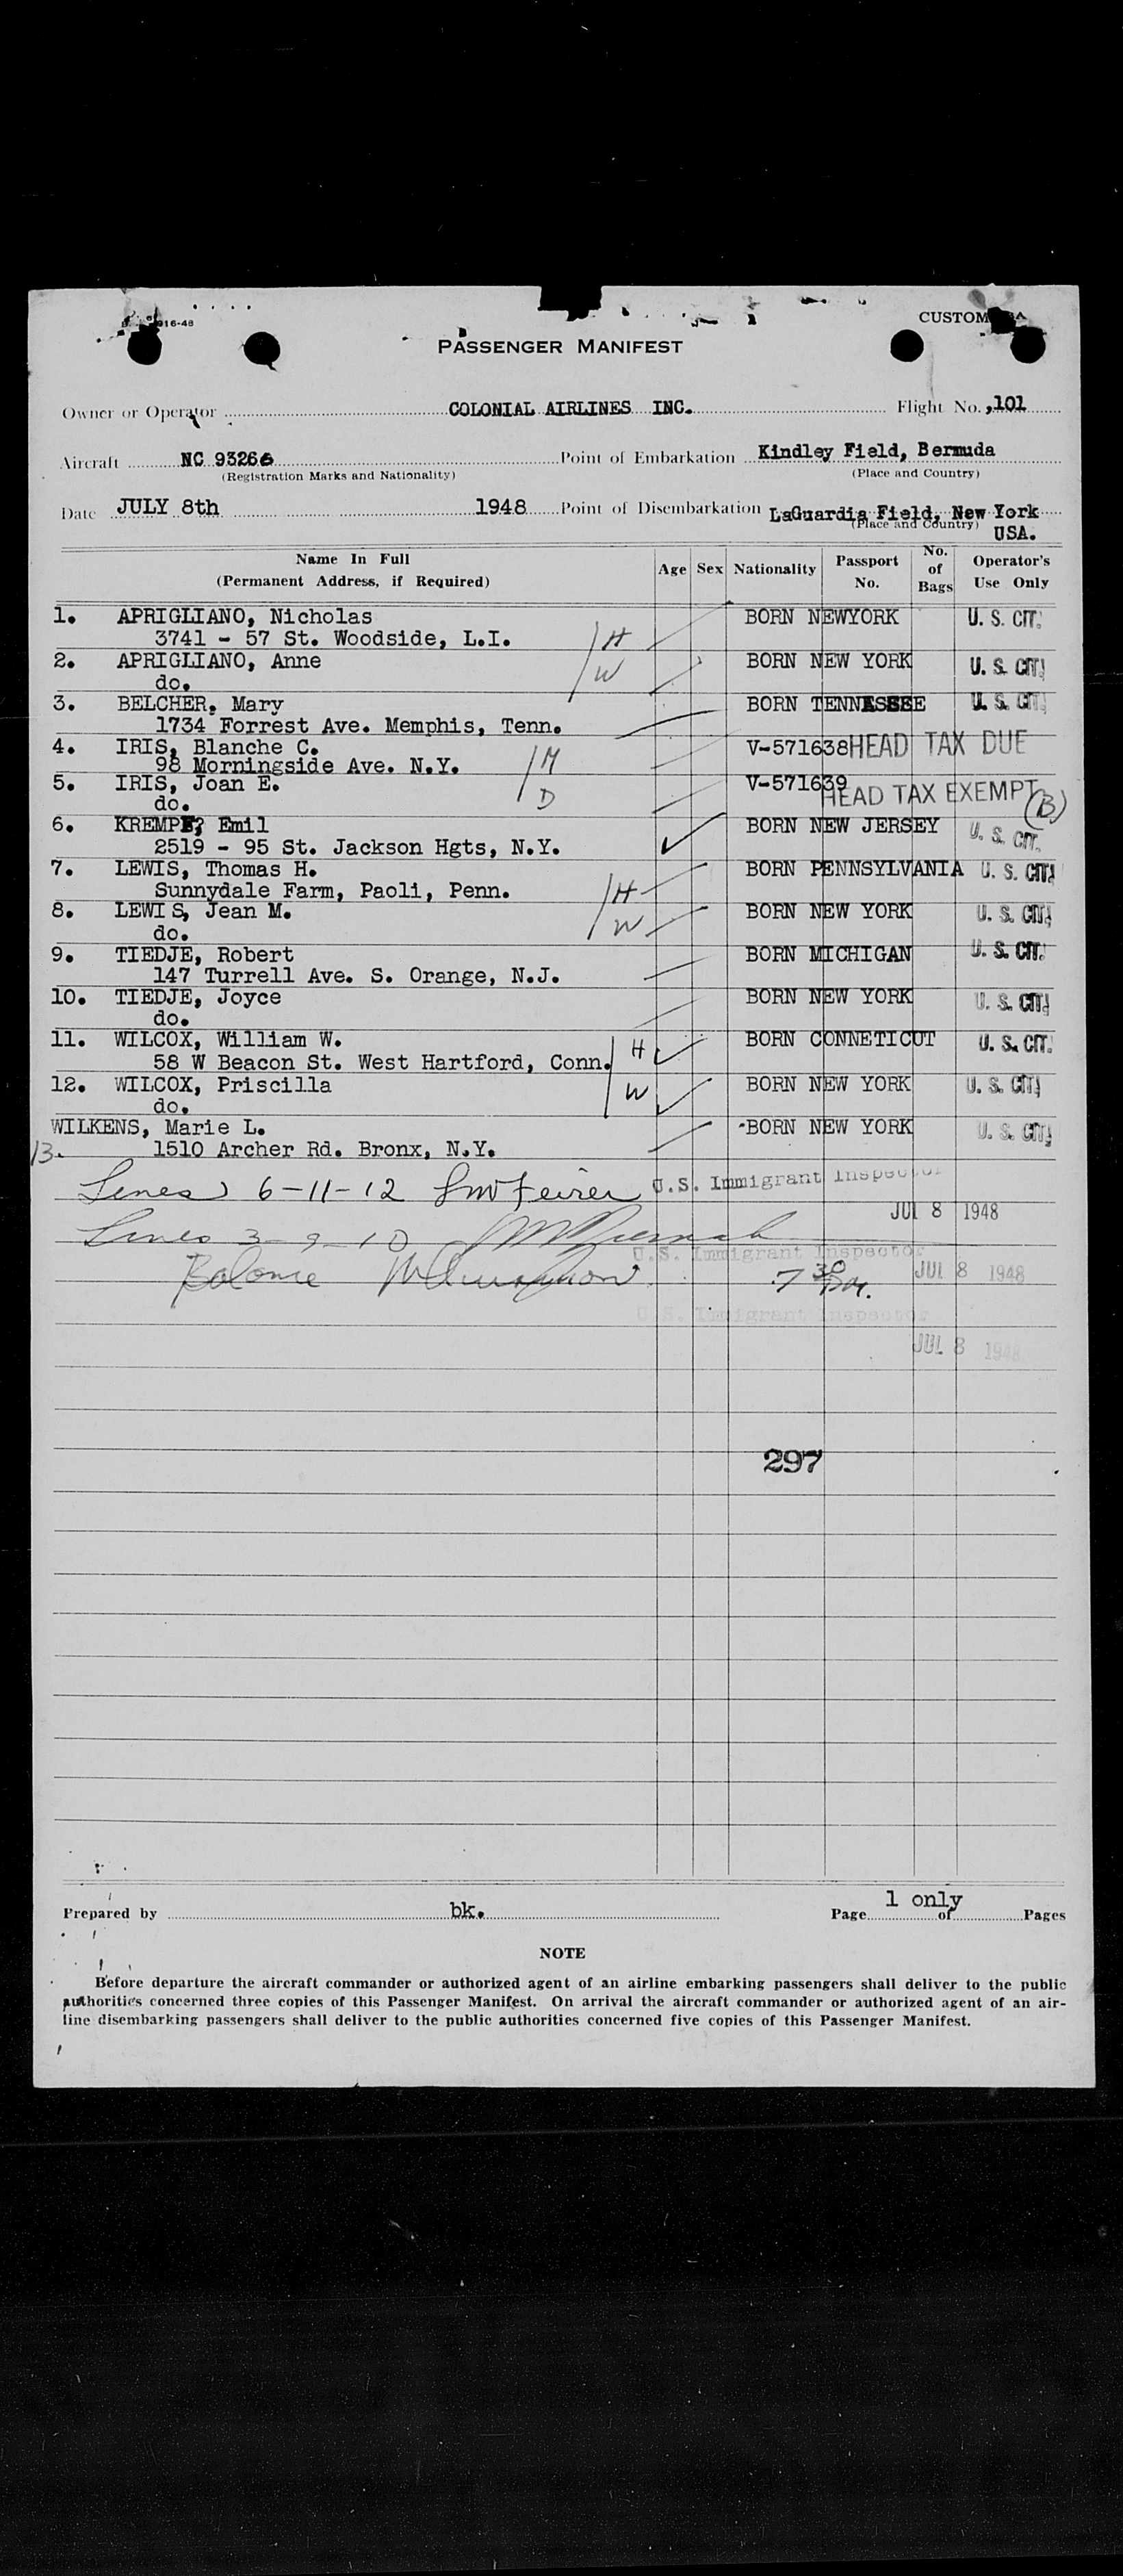 16-48
CUSTOM
PASSENGER MANIFEST
Owner or Operator COLONIAL AIRLINES INC. Flight No. 101
Aircraft NC 93266 Point of Embarkation Kindley Field, Bermuda
(Registration Marks and Nationality) (Place and Country)
Date JULY 8th 1948 Point of Disembarkation LaGuardia Field, New York
(Place and Country) USA.
Name In Full (Permanent Address, if Required) Age Sex Nationality Passport No. No. of Bags Operator's Use Only
1. APRIGLIANO, Nicholas BORN NEWYORK U. S. CIT.
3741 - 57 St. Woodside, L.I. H
2. APRIGLIANO, Anne W BORN NEW YORK U. S. CIT.
do.
3. BELCHER, Mary BORN TENNESSEE U. S. CIT.
1734 Forrest Ave. Memphis, Tenn.
4. IRIS, Blanche C. M V-571638 HEAD TAX DUE
98 Morningside Ave. N.Y.
5. IRIS, Joan E. D V-571639 HEAD TAX EXEMPT (B)
do.
6. KREMPF? Emil BORN NEW JERSEY U. S. CIT.
2519 - 95 St. Jackson Hgts, N.Y.
7. LEWIS, Thomas H. BORN PENNSYLVANIA U. S. CIT.
Sunnydale Farm, Paoli, Penn. H
8. LEWIS, Jean M. W BORN NEW YORK U. S. CIT.
do.
9. TIEDJE, Robert BORN MICHIGAN U. S. CIT.
147 Turrell Ave. S. Orange, N.J.
10. TIEDJE, Joyce BORN NEW YORK U. S. CIT.
do.
11. WILCOX, William W. H BORN CONNETICUT U. S. CIT.
58 W Beacon St. West Hartford, Conn.
12. WILCOX, Priscilla W BORN NEW YORK U. S. CIT.
do.
WILKENS, Marie L. BORN NEW YORK U. S. CIT.
13. 1510 Archer Rd. Bronx, N.Y.
Lines 6-11-12 U.S. Immigrant Inspector
JUL 8 1948
Lines 3-9-10
U.S. Immigrant Inspector
Balance 7 30 PM. JUL 8 1948
U.S. Immigrant Inspector
JUL 8 1948
297
Prepared by bk. Page 1 only of Pages
NOTE
Before departure the aircraft commander or authorized agent of an airline embarking passengers shall deliver to the public
authorities concerned three copies of this Passenger Manifest. On arrival the aircraft commander or authorized agent of an air-
line disembarking passengers shall deliver to the public authorities concerned five copies of this Passenger Manifest.